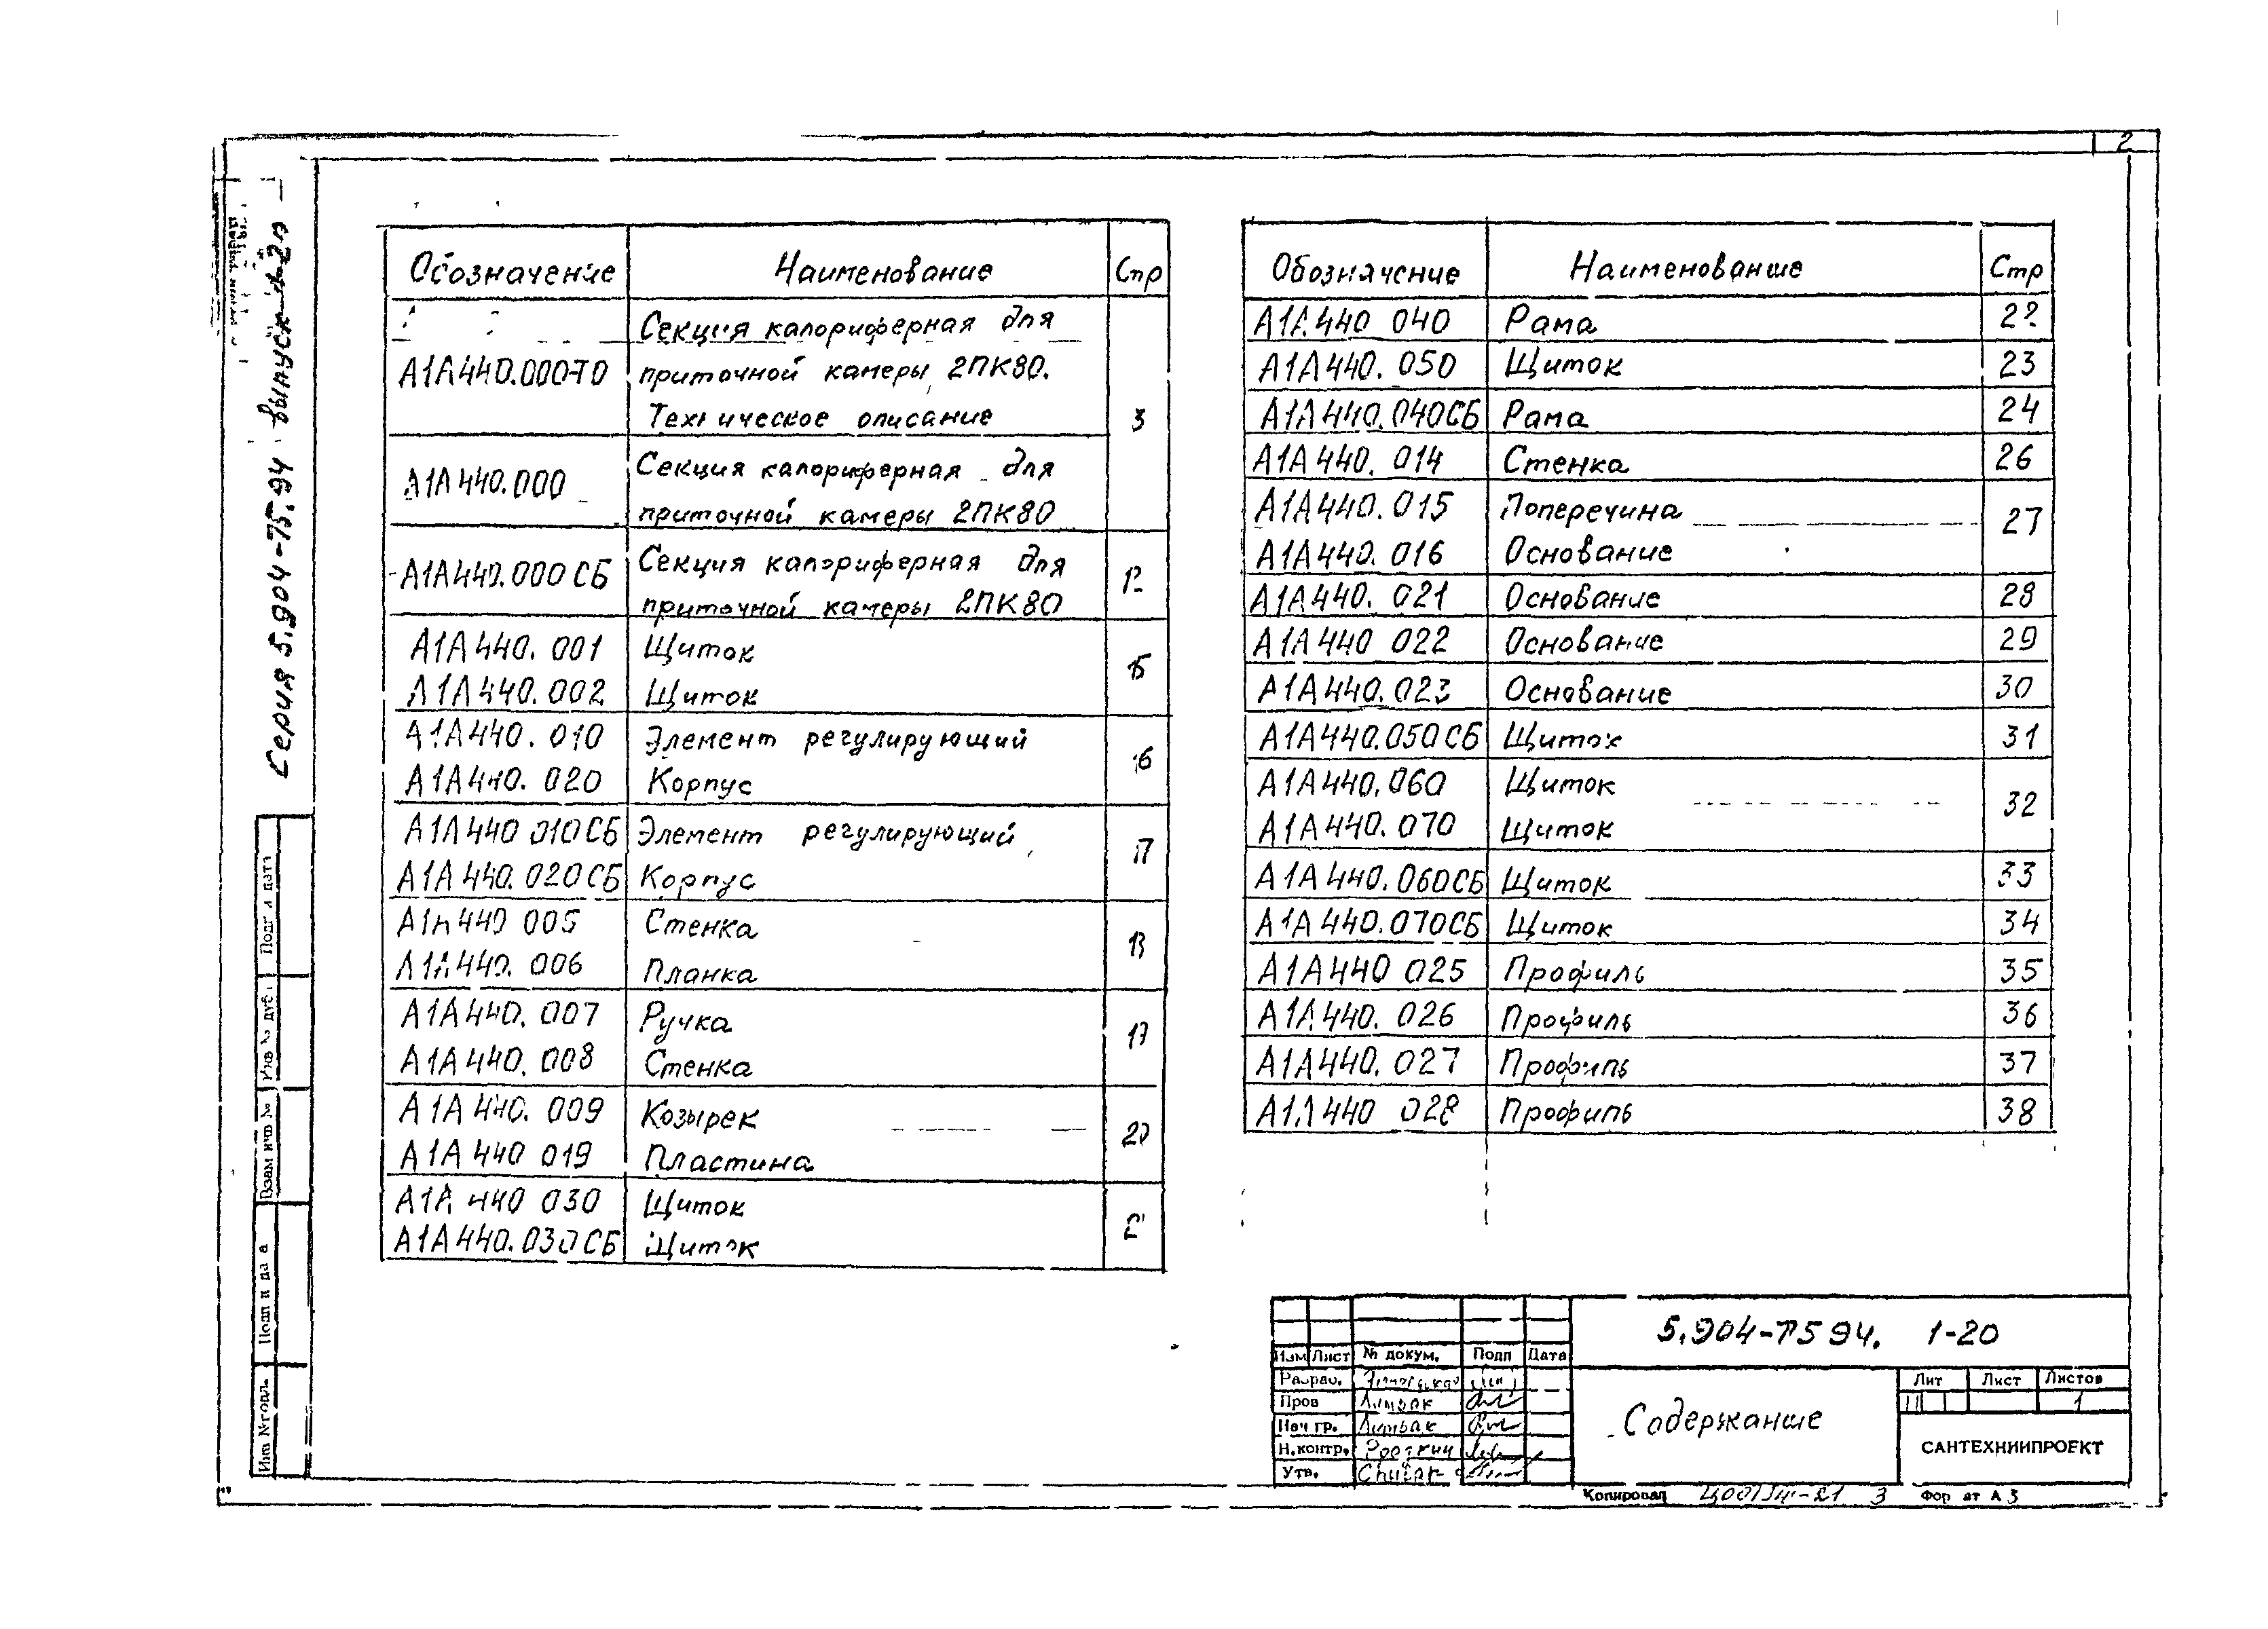 2
Серия 5.904-75.94 выпуск 1-20
Обозначение Наименование Стр
А1А440.000ТО Секция калориферная для
приточной камеры 2ПК80.
Техническое описание 3
А1А440.000 Секция калориферная для
приточной камеры 2ПК80
А1А440.000 СБ Секция калориферная для
приточной камеры 2ПК80
А1А440.001 Щиток
А1А440.002 Щиток 15
А1А440.010 Элемент регулирующий
А1А440.020 Корпус 16
А1А440 010СБ Элемент регулирующий
А1А440.020СБ Корпус 17
А1А440 005 Стенка
А1А440.006 Планка
А1А440.007 Ручка
А1А440.008 Стенка
А1А440.009 Козырек
А1А440 019 Пластина 20
А1А 440 030 Щиток
А1А440.030СБ Щиток
Обозначение Наименование Стр
А1А440 040 Рама 22
А1А440.050 Щиток 23
А1А440.040СБ Рама 24
А1А440.014 Стенка 26
А1А440.015 Поперечина 27
А1А440.016 Основание
А1А440.021 Основание 28
А1А440 022 Основание 29
А1А440.023 Основание 30
А1А440.050СБ Щиток 31
А1А440.060 Щиток 32
А1А440.070 Щиток
А1А440.060СБ Щиток 33
А1А440.070СБ Щиток 34
А1А440 025 Профиль 35
А1А440.026 Профиль 36
А1А440.027 Профиль 37
А1А440 028 Профиль 38
Подп и дата
Инв № дубл.
Взам инв №
Подп и дата
Инв № подл.
5.904-75 94. 1-20
Изм Лист № докум. Подп Дата
Разраб.
Пров Литвак
Нач гр. Литвак
Н.контр.
Утв.
Содержание
Лит Лист Листов
1
САНТЕХНИИПРОЕКТ
Копировал 3 Формат А3